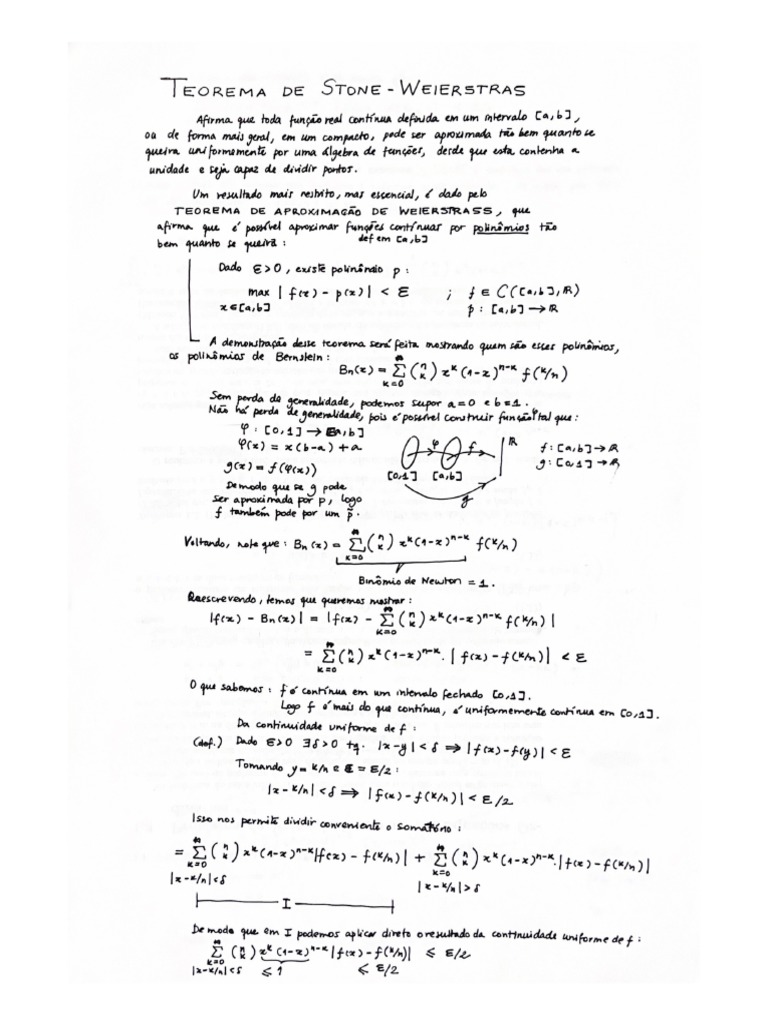 TEOREMA DE STONE-WEIERSTRAS
Afirma que toda função real contínua definida em um intervalo [a,b],
ou de forma mais geral, em um compacto, pode ser aproximada tão bem quanto se
queira uniformemente por uma álgebra de funções, desde que esta contenha a
unidade e seja capaz de dividir pontos.
Um resultado mais restrito, mas essencial, é dado pelo
TEOREMA DE APROXIMAÇÃO DE WEIERSTRASS, que
afirma que é possível aproximar funções contínuas por polinômios tão
def em [a,b]
bem quanto se queira:
Dado ε>0, existe polinômio p:
max |f(x) - p(x)| < ε ; f ∈ C([a,b],ℝ)
x∈[a,b] p: [a,b] → ℝ
A demonstração desse teorema será feita mostrando quem são esses polinômios,
os polinômios de Bernstein:
Bn(x) = n∑k=0 (n k) x^k (1-x)^n-k f(k/n)
Sem perda da generalidade, podemos supor a=0 e b=1.
Não há perda de generalidade, pois é possível construir função φ tal que:
φ: [0,1] → [a,b]
φ(x) = x(b-a) + a
g(x) = f(φ(x))
φ f ℝ
[0,1] [a,b]
g
f: [a,b] → ℝ
g: [0,1] → ℝ
De modo que se g pode
ser aproximada por p, logo
f também pode por um p̃.
Voltando, note que: Bn(x) = n∑k=0 (n k) x^k (1-x)^n-k f(k/n)
Binômio de Newton = 1.
Reescrevendo, temos que queremos mostrar:
|f(x) - Bn(x)| = |f(x) - n∑k=0 (n k) x^k (1-x)^n-k f(k/n)|
= n∑k=0 (n k) x^k (1-x)^n-k . |f(x) - f(k/n)| < ε
O que sabemos: f é contínua em um intervalo fechado [0,1].
Logo f é mais do que contínua, é uniformemente contínua em [0,1].
Da continuidade uniforme de f:
(def.) Dado ε>0 ∃δ>0 tq. |x-y| < δ ⇒ |f(x)-f(y)| < ε
Tomando y = k/n e ε = ε/2:
|x-k/n| < δ ⇒ |f(x) - f(k/n)| < ε/2
Isso nos permite dividir conveniente o somatório:
= n∑k=0 (n k) x^k (1-x)^n-k |f(x) - f(k/n)| + n∑k=0 (n k) x^k (1-x)^n-k . |f(x) - f(k/n)|
|x-k/n|<δ |x-k/n|>δ
I
De modo que em I podemos aplicar direto o resultado da continuidade uniforme de f:
n∑k=0 (n k) x^k (1-x)^n-k |f(x) - f(k/n)| ≤ ε/2
|x-k/n|<δ ≤ 1 ≤ ε/2